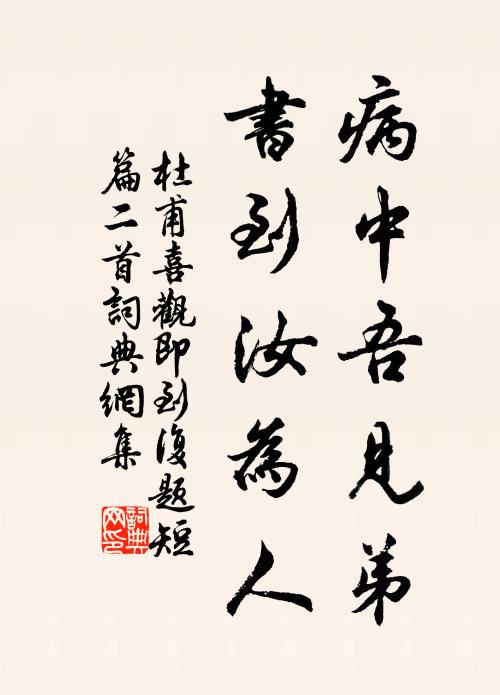 病中吾見弟
書到汝為人
杜甫喜觀即到復題短
篇二首詞典網集
詞典網印